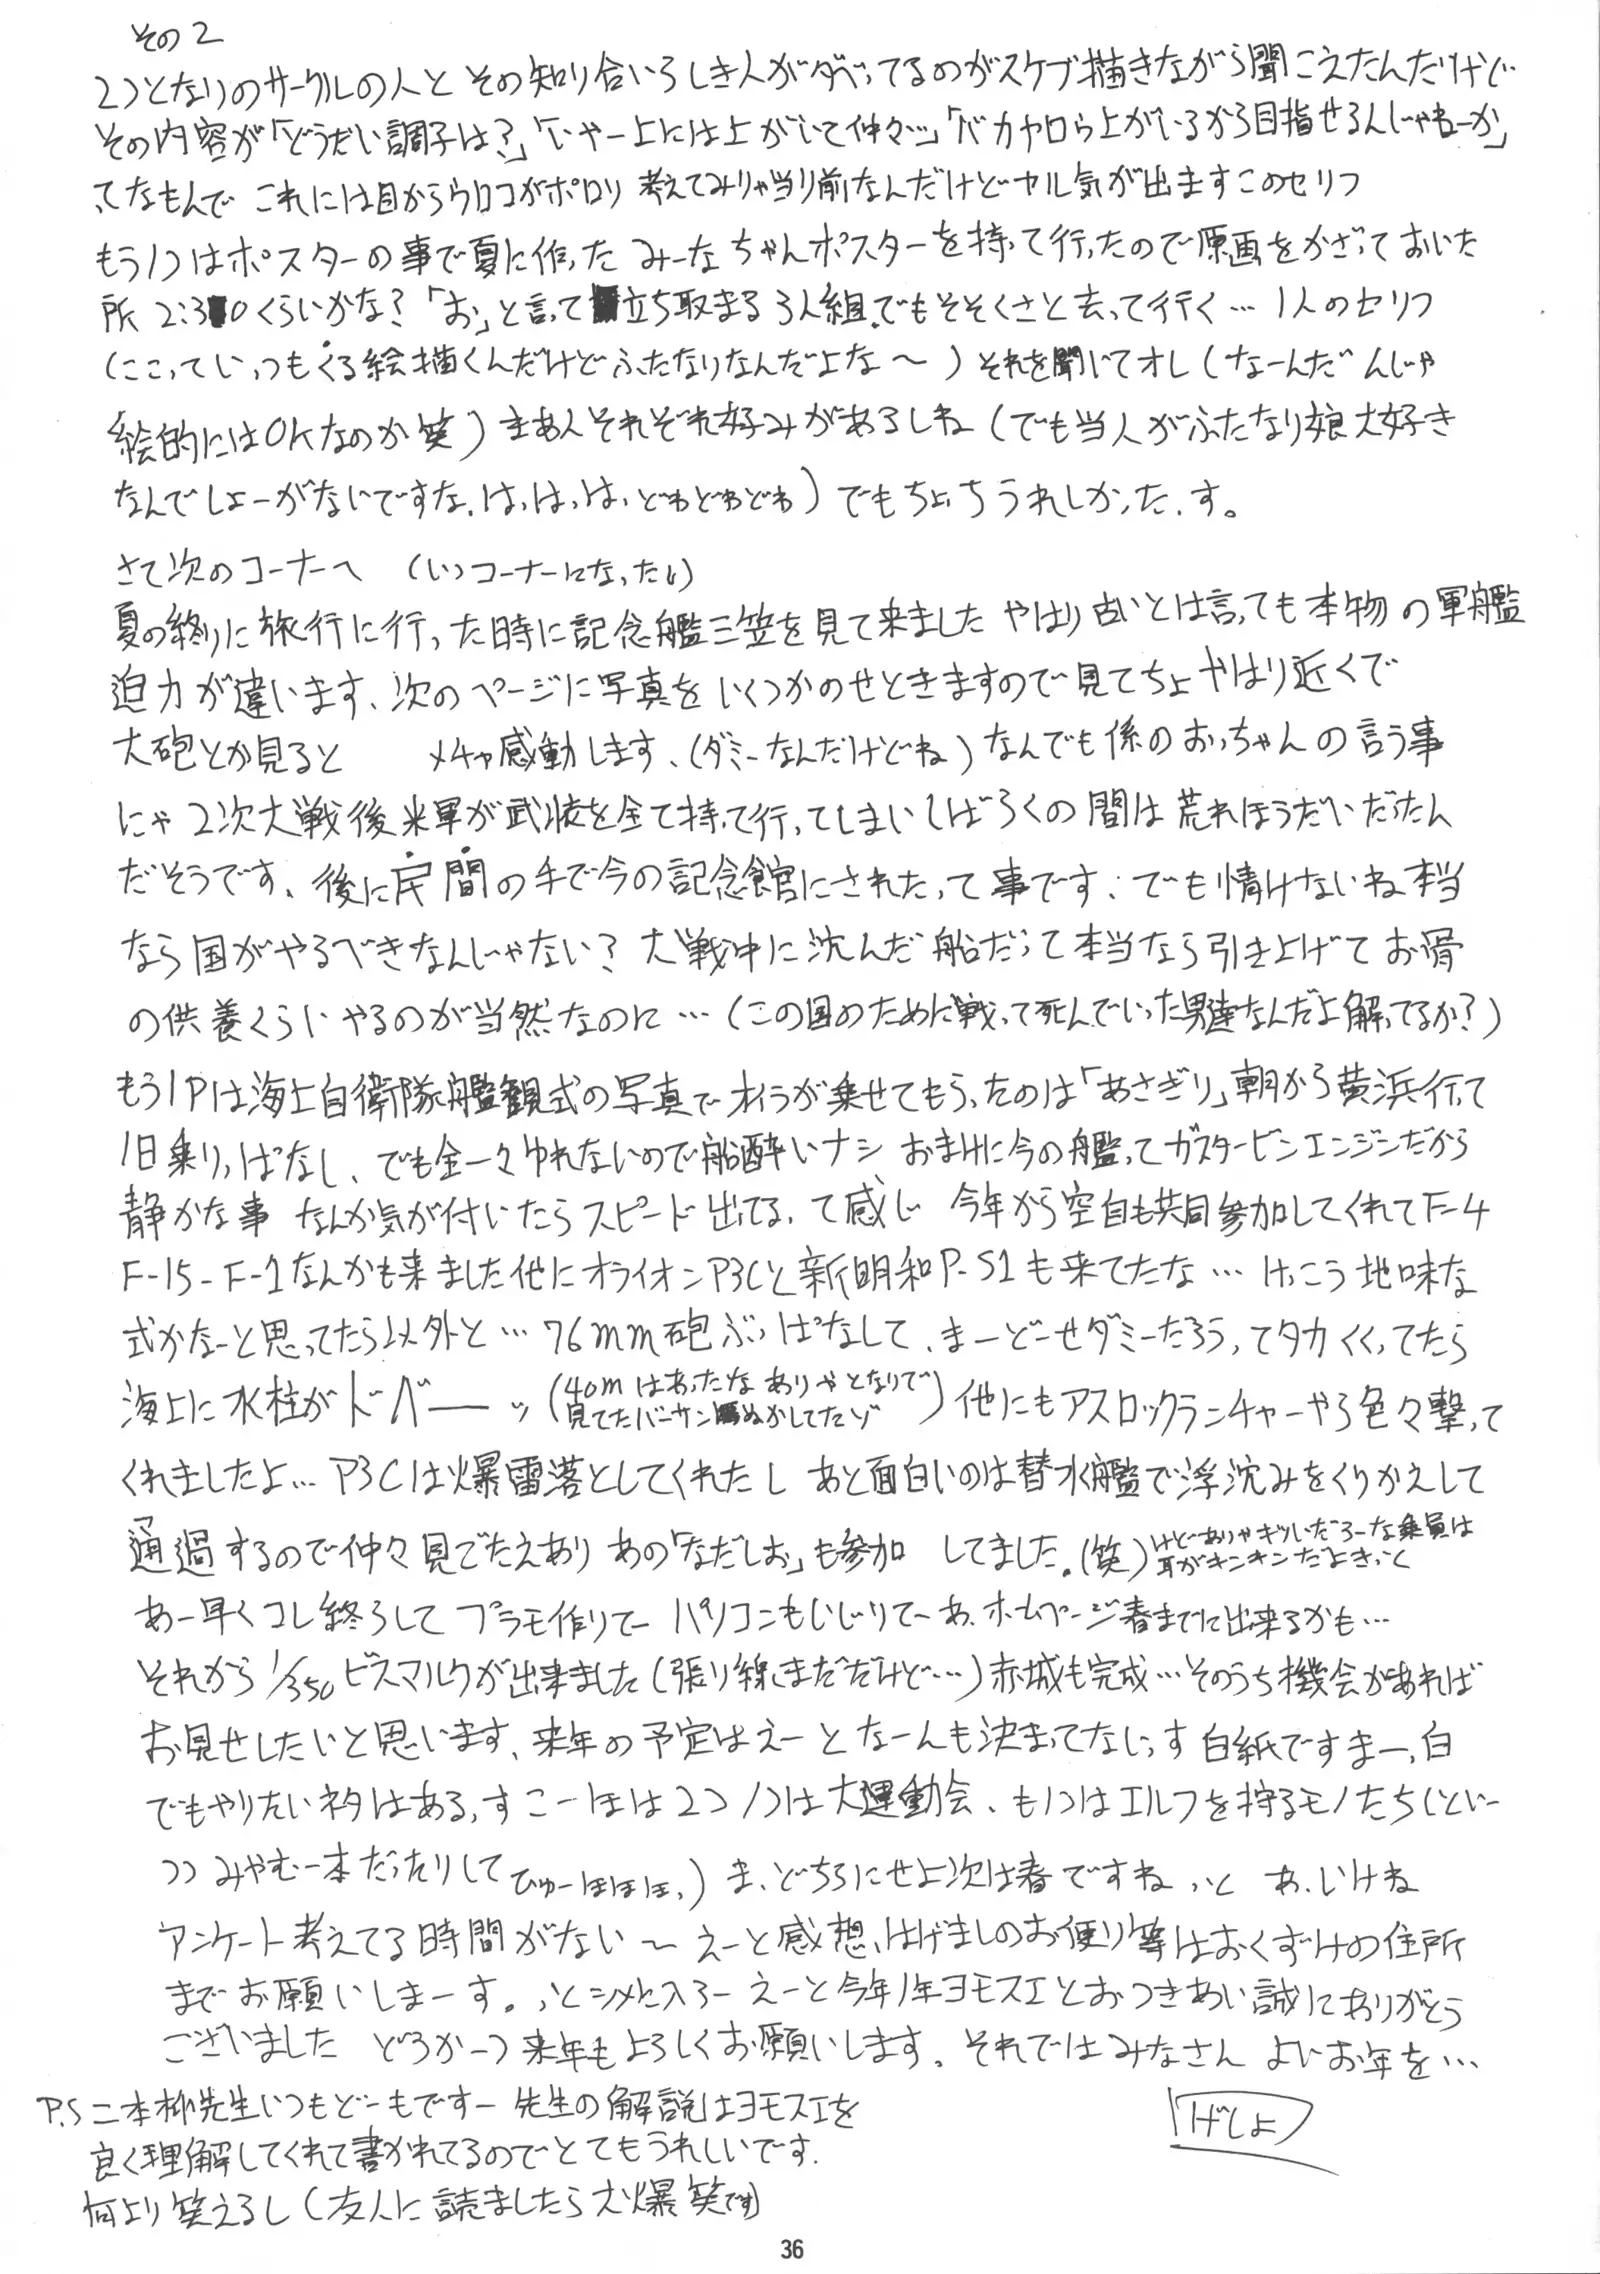 その2
2つとなりのサークルの人と その知り合いらしき人がダベってるのがスケブ描きながら聞こえたんだけど
その内容が「どうだい調子は?」「いやー上には上がいて仲々…」「バカヤロウ上がいるから目指せるんじゃねーか」
ってなもんで これには目からウロコがポロリ 考えてみりゃ当り前なんだけどヤル気が出ますこのセリフ
もう1つはポスターの事で夏に作った みーなちゃんポスターを持って行ったので原画をかざっておいた
所 2:30くらいかな?「お」と言って立ち取まる3人組。でもそそくさと去って行く… 1人のセリフ
(ここっていつもくる絵描くんだけどふたなりなんだよな〜) それを聞いてオレ (なーんだ んじゃ
絵的にはOKなのか 笑) まあ人それぞれ好みがあるしね (でも当人がふたなり娘大好き
なんでしょーがないですな.はっはっは、どわどわどわ) でもちょっちうれしかったっす。
さて次のコーナーへ (いつコーナーになったい)
夏の終りに旅行に行った時に記念艦三笠を見て来ました やはり古いとは言っても本物の軍艦
迫力が違います、次のページに写真をいくつかのせときますので見てちょ やはり近くで
大砲とか見ると メチャ感動します、(ダミーなんだけどね) なんでも係のおっちゃんの言う事
にゃ2次大戦後米軍が武装を全て持って行ってしまいしばらくの間は荒れほうだいだったん
だそうです、後に民間の手で今の記念館にされたって事です、でも情けないね本当
なら国がやるべきなんじゃない? 大戦中に沈んだ船だって本当なら引き上げてお骨
の供養くらいやるのが当然なのに…(この国のために戦って死んでいった男達なんだよ解ってるか?)
もう1Pは海上自衛隊艦観式の写真でオイラが乗せてもらったのは「あさぎり」朝から黄浜行って
1日乗りっぱなし、でも全々ゆれないので船酔いナシ おまけに今の艦ってガスタービンエンジンだから
静かな事 なんか気が付いたらスピード出てるって感じ 今年から空自も共同参加してくれてF-4
F-15-F-1なんかも来ました他にオライオンP3Cと新明和P-S1も来てたな… けっこう地味な
式かなーと思ってたら以外と… 76mm砲ぶっぱなして、まーどーせダミーだろうってタカくくってたら
海上に水柱がドバーーッ (40mはあったな ありゃとなりで
見てたバーサンぬかしてたゾ) 他にもアスロックランチャーやら色々撃って
くれましたよ… P3Cは爆雷落としてくれたし あと面白いのは替水艦で浮沈みをくりかえして
通過するので仲々見でたえあり あの「なだしお」も参加 してました.(笑) けどありゃキツいだろーな乗員は
耳がキンキンだよきっと
あー早くコレ終らして プラモ作りてー パソコンもいじりてー あ、ホームページ春までに出来るかも…
それから1/350ビスマルクが出来ました(張り線まだだけど…)赤城も完成…そのうち機会があれば
お見せしたいと思います、来年の予定はえーと なーんも決まってないっす 白紙ですまっ白
でもやりたいネタはあるっすこーほは2つ 1つは大運動会、も1つはエルフを狩るモノたち(といー
つつみやむー本だったりして ひゅーほほほっ) ま、どちらにせよ次は春ですねっと あ、いけね
アンケート考えてる時間がない〜 えーと感想、はげましのお便り等はおくずけの住所
までお願いしまーす。っとシメに入ろー えーと今年1年ヨモスエとおつきあい誠にありがとう
ございました どうかーつ来年もよろしくお願いします、それではみなさん よいお年を…
げしょ
P.S 二本柳先生いつもどーもですー 先生の解説はヨモスエを
良く理解してくれて書かれてるのでとてもうれしいです.
何より笑えるし(友人に読ましたら大爆笑です)
36